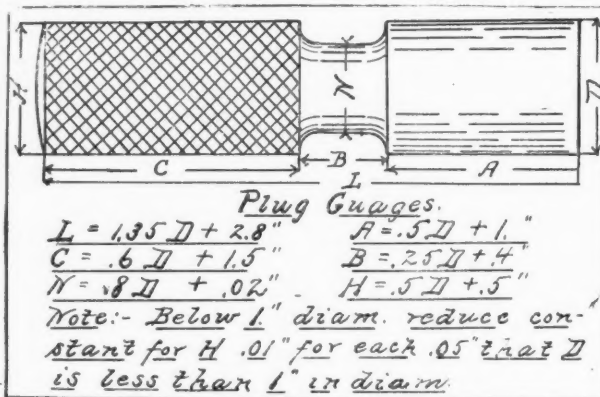 H
N
D
C
B
A
L
Plug Guages.
L = 1.35 D + 2.8" A = .5 D + 1."
C = .6 D + 1.5" B = .25 D + .4"
N = .8 D + .02" H = .5 D + .5"
Note:- Below 1" diam. reduce con-
stant for H .01" for each .05" that D
is less than 1" in diam.